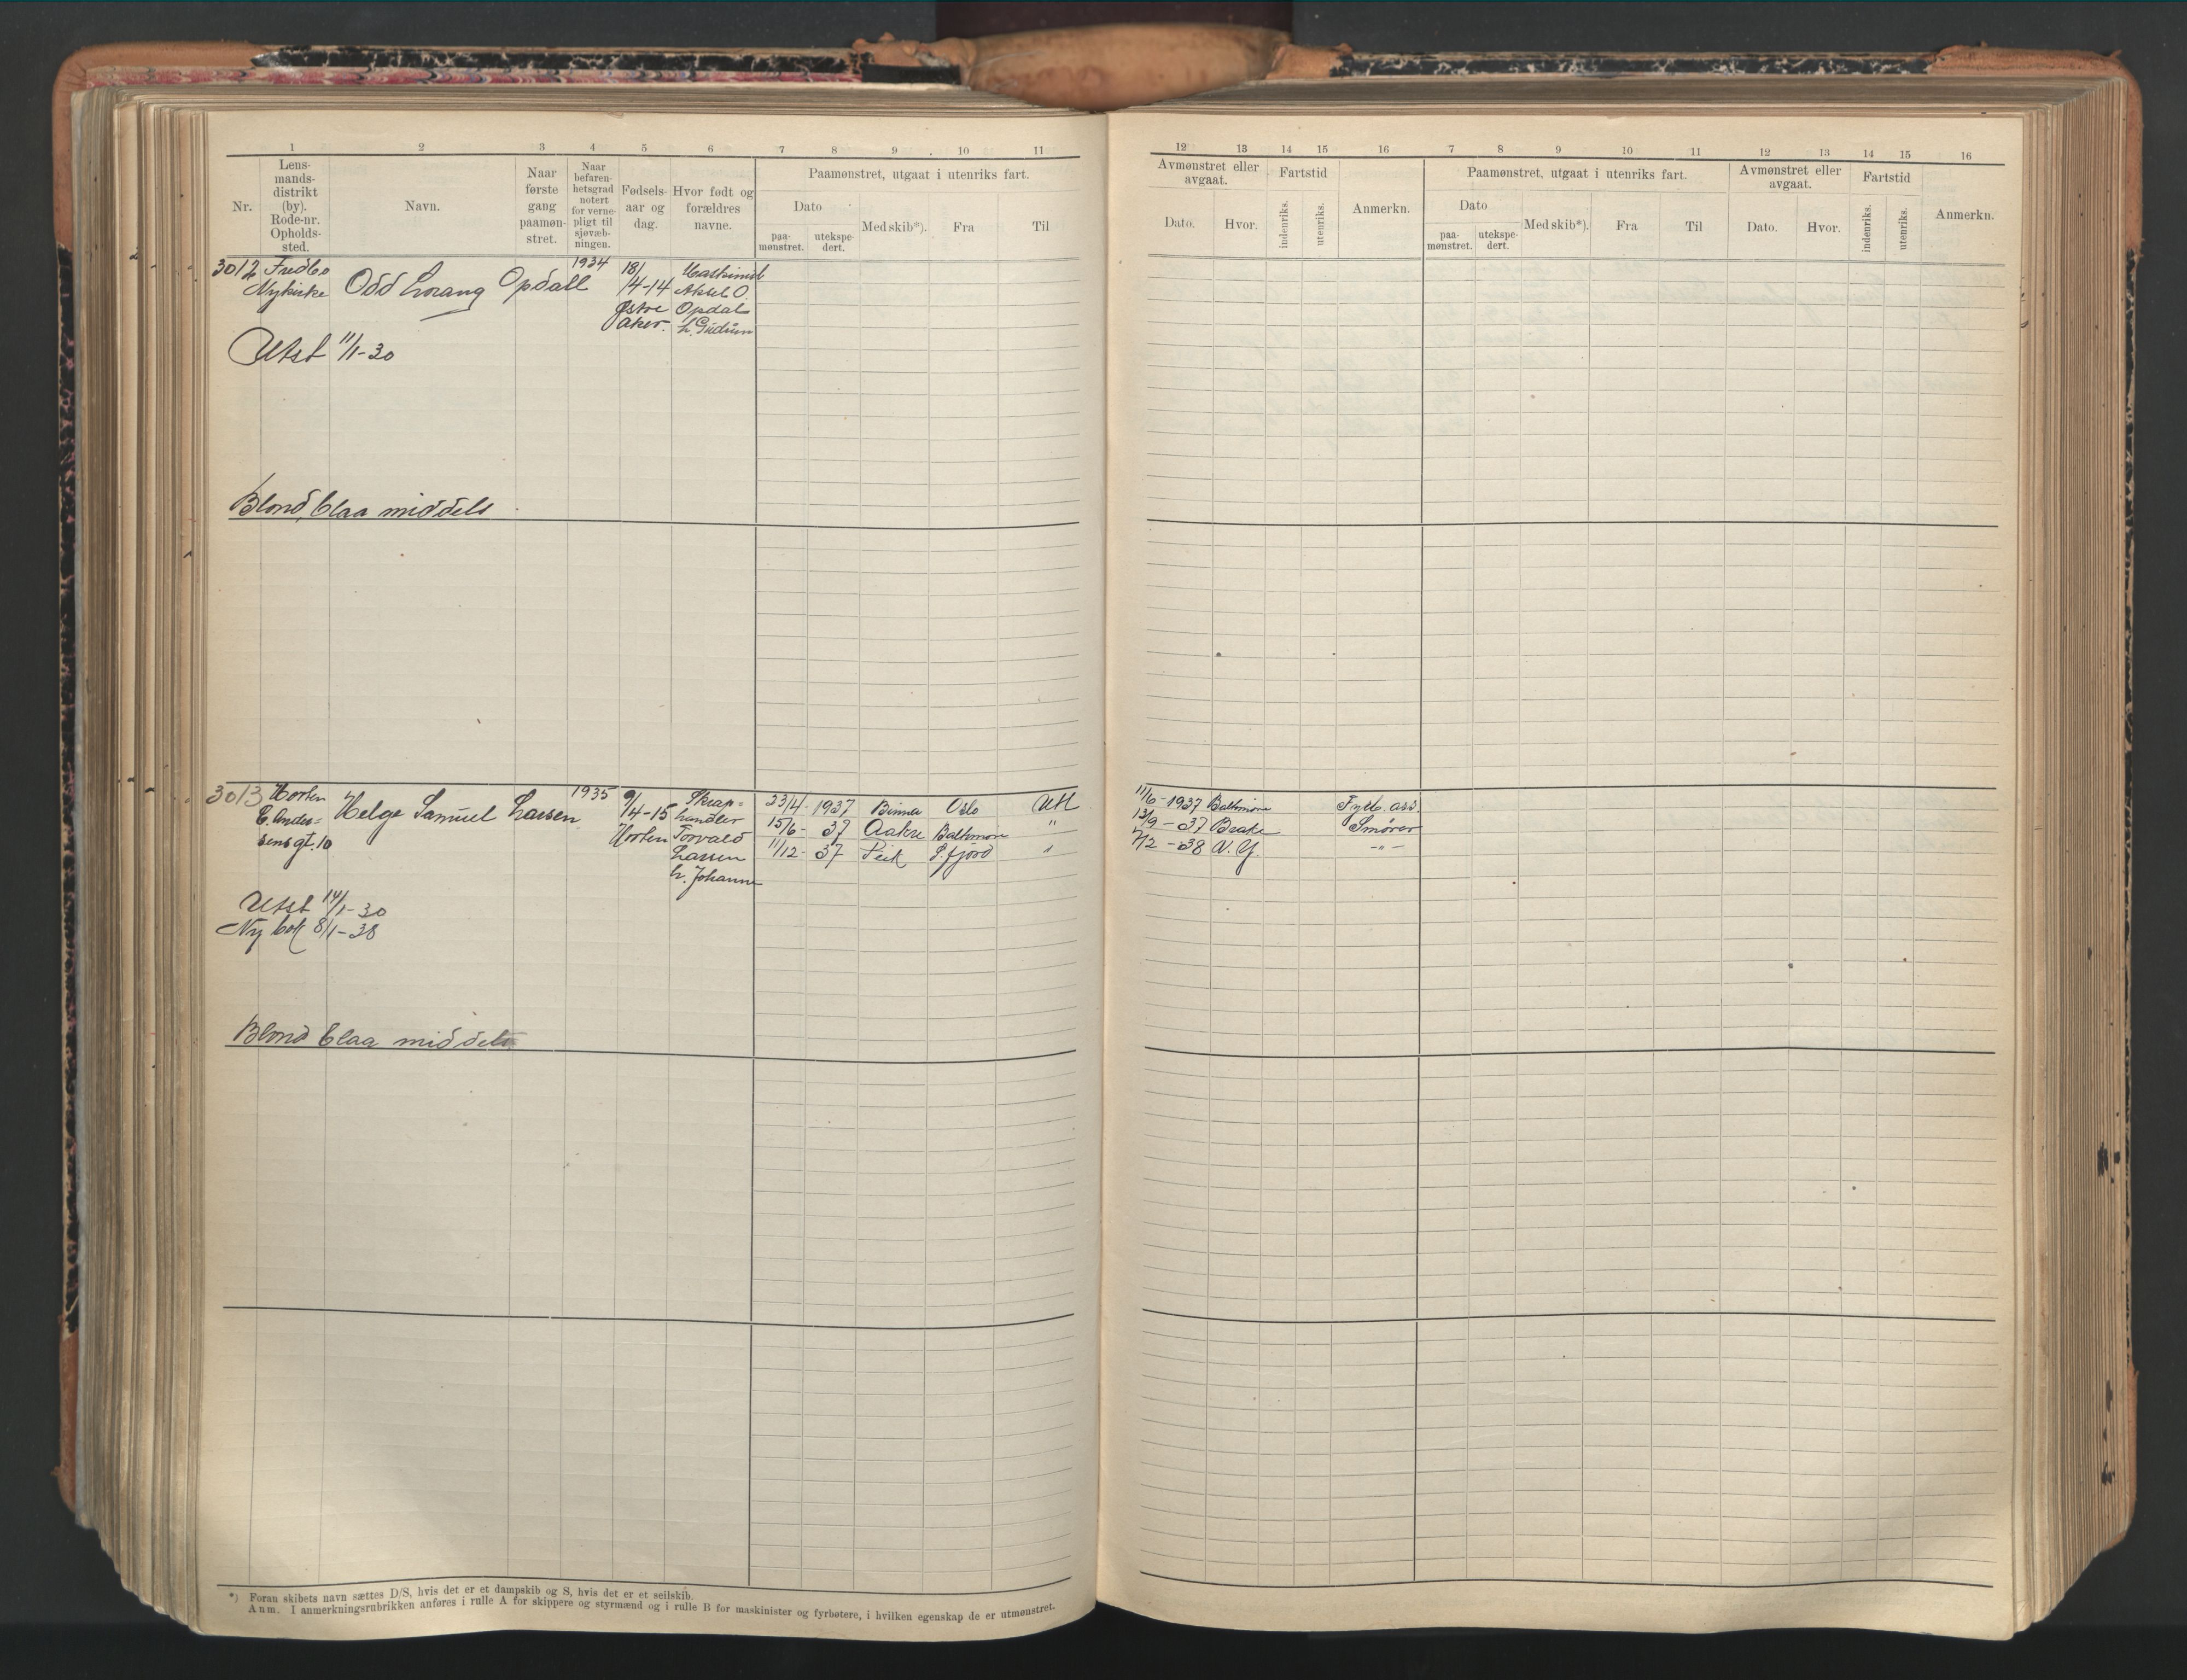 1 2 3 4 5 6 7 8 9 10 11
Nr.
Lens-
mands-
distrikt
(by).
Rode-nr.
Opholds-
sted.
Navn.
Naar
første
gang
paamøn-
stret.
Naar
befaren-
hetsgrad
notert
for verne-
pligt til
sjøvæb-
ningen.
Fødsels-
aar og
dag.
Hvor født og
forældres
navne.
Paamønstret, utgaat i utenriks fart.
Dato
paa-
mønstret.
utekspe-
dert.
Med skib*).
Fra
Til
3012 Fredbo Odd Lorang Opdall 1934 18/ Maskinist
Nykirke 4-14 Aksel O.
Østre Opdal
Aker. h. Gudrun
Utst 11/1-30
Blond, blaa middels
3013 Horten Helge Samuel Larsen 1935 9/ Skrap= 23/4- 1937 Binna Oslo Utl
C. Anders= 4-15 handler 15/6- 37 Aakre Baltimore "
sensgt. 10 Horten Torvald 11/12- 37 Peik S.fjord "
Larsen
h. Johanne
Utst 14/1-30
Ny bok 8/1-38
Blond blaa middels
*) Foran skibets navn sættes D/S, hvis det er et dampskib og S, hvis det er et seilskib.
Anm. I anmerkningsrubrikken anføres i rulle A for skippere og styrmænd og i rulle B for maskinister og fyrbøtere, i hvilken egenskap de er utmønstret.
12 13 14 15 16 7 8 9 10 11 12 13 14 15 16
Avmønstret eller
avgaat.
Dato.
Hvor.
Fartstid
indenriks.
utenriks.
Anmerkn.
Paamønstret, utgaat i utenriks fart.
Dato
paa-
mønstret.
utekspe-
dert.
Med skib*).
Fra
Til
Avmønstret eller
avgaat.
Dato.
Hvor.
Fartstid
indenriks.
utenriks.
Anmerkn.
11/6-1937 Baltimore Fyrb. ass.
13/9-37 Brake Smører
7/2-38 N.Y. -"-